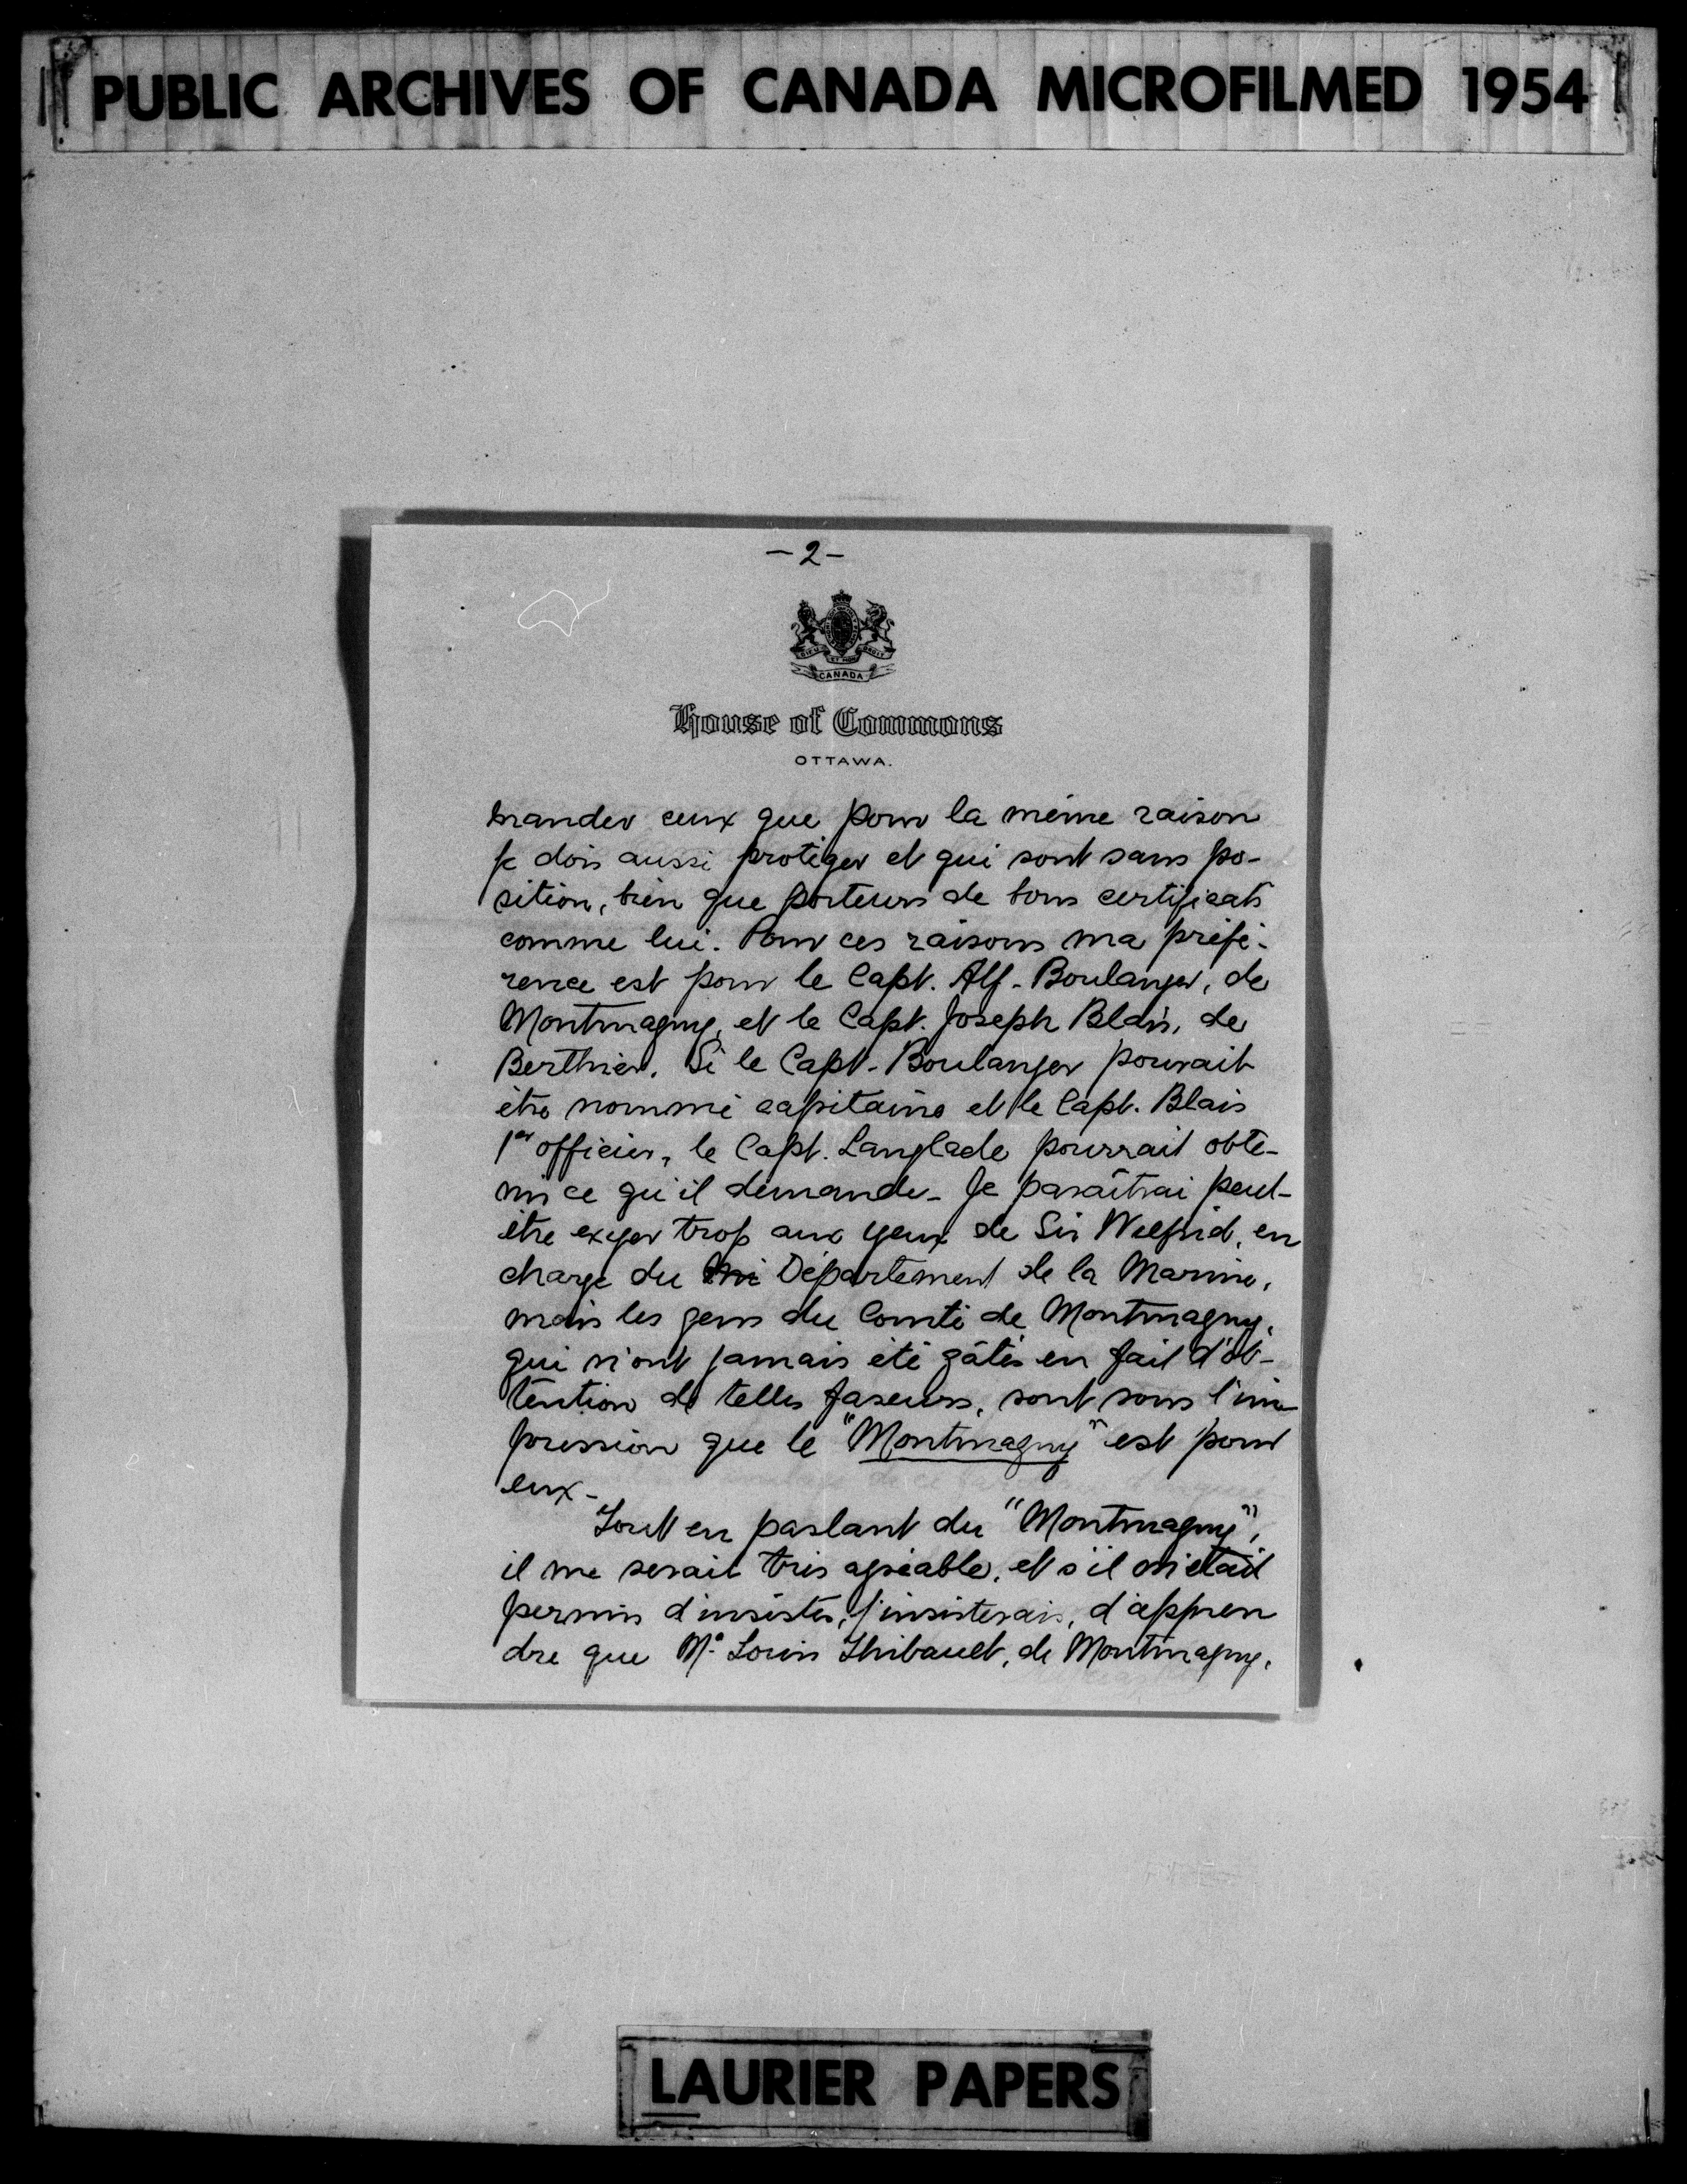 PUBLIC ARCHIVES OF CANADA MICROFILMED 1954
- 2 -
DIEU ET MON DROIT
CANADA
House of Commons
OTTAWA.
mander ceux que pour la même raison
je dois aussi protéger et qui sont sans po-
sition, bien que porteurs de bons certificats
comme lui. Pour ces raisons ma préfé-
rence est pour le Capt. Alf. Boulanger, de
Montmagny, et le Capt. Joseph Blais, de
Berthier. Si le Capt. Boulanger pouvait
être nommé capitaine et le Capt. Blais
1er officier, le Capt. Langlade pourrait obte-
nir ce qu'il demande. Je paraîtrai peut-
être exiger trop aux yeux de Sir Wilfrid, en
charge du Département de la Marine,
mais les gens du Comté de Montmagny,
qui n'ont jamais été gâtés en fait d'ob-
tention de telles faveurs, sont sous l'im
pression que le "Montmagny" est pour
eux-
Tout en parlant du "Montmagny",
il me serait très agréable, et s'il m'était
permis d'insister, j'insisterais, d'appren
dre que Mr. Louis Thibault, de Montmagny,
LAURIER PAPERS